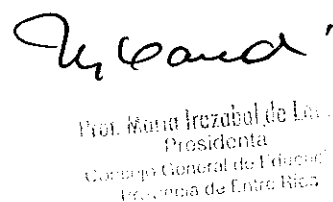 Prof. Maria Irazabal de
Presidenta
Consejo General de Educac
Provincia de Entre Rios